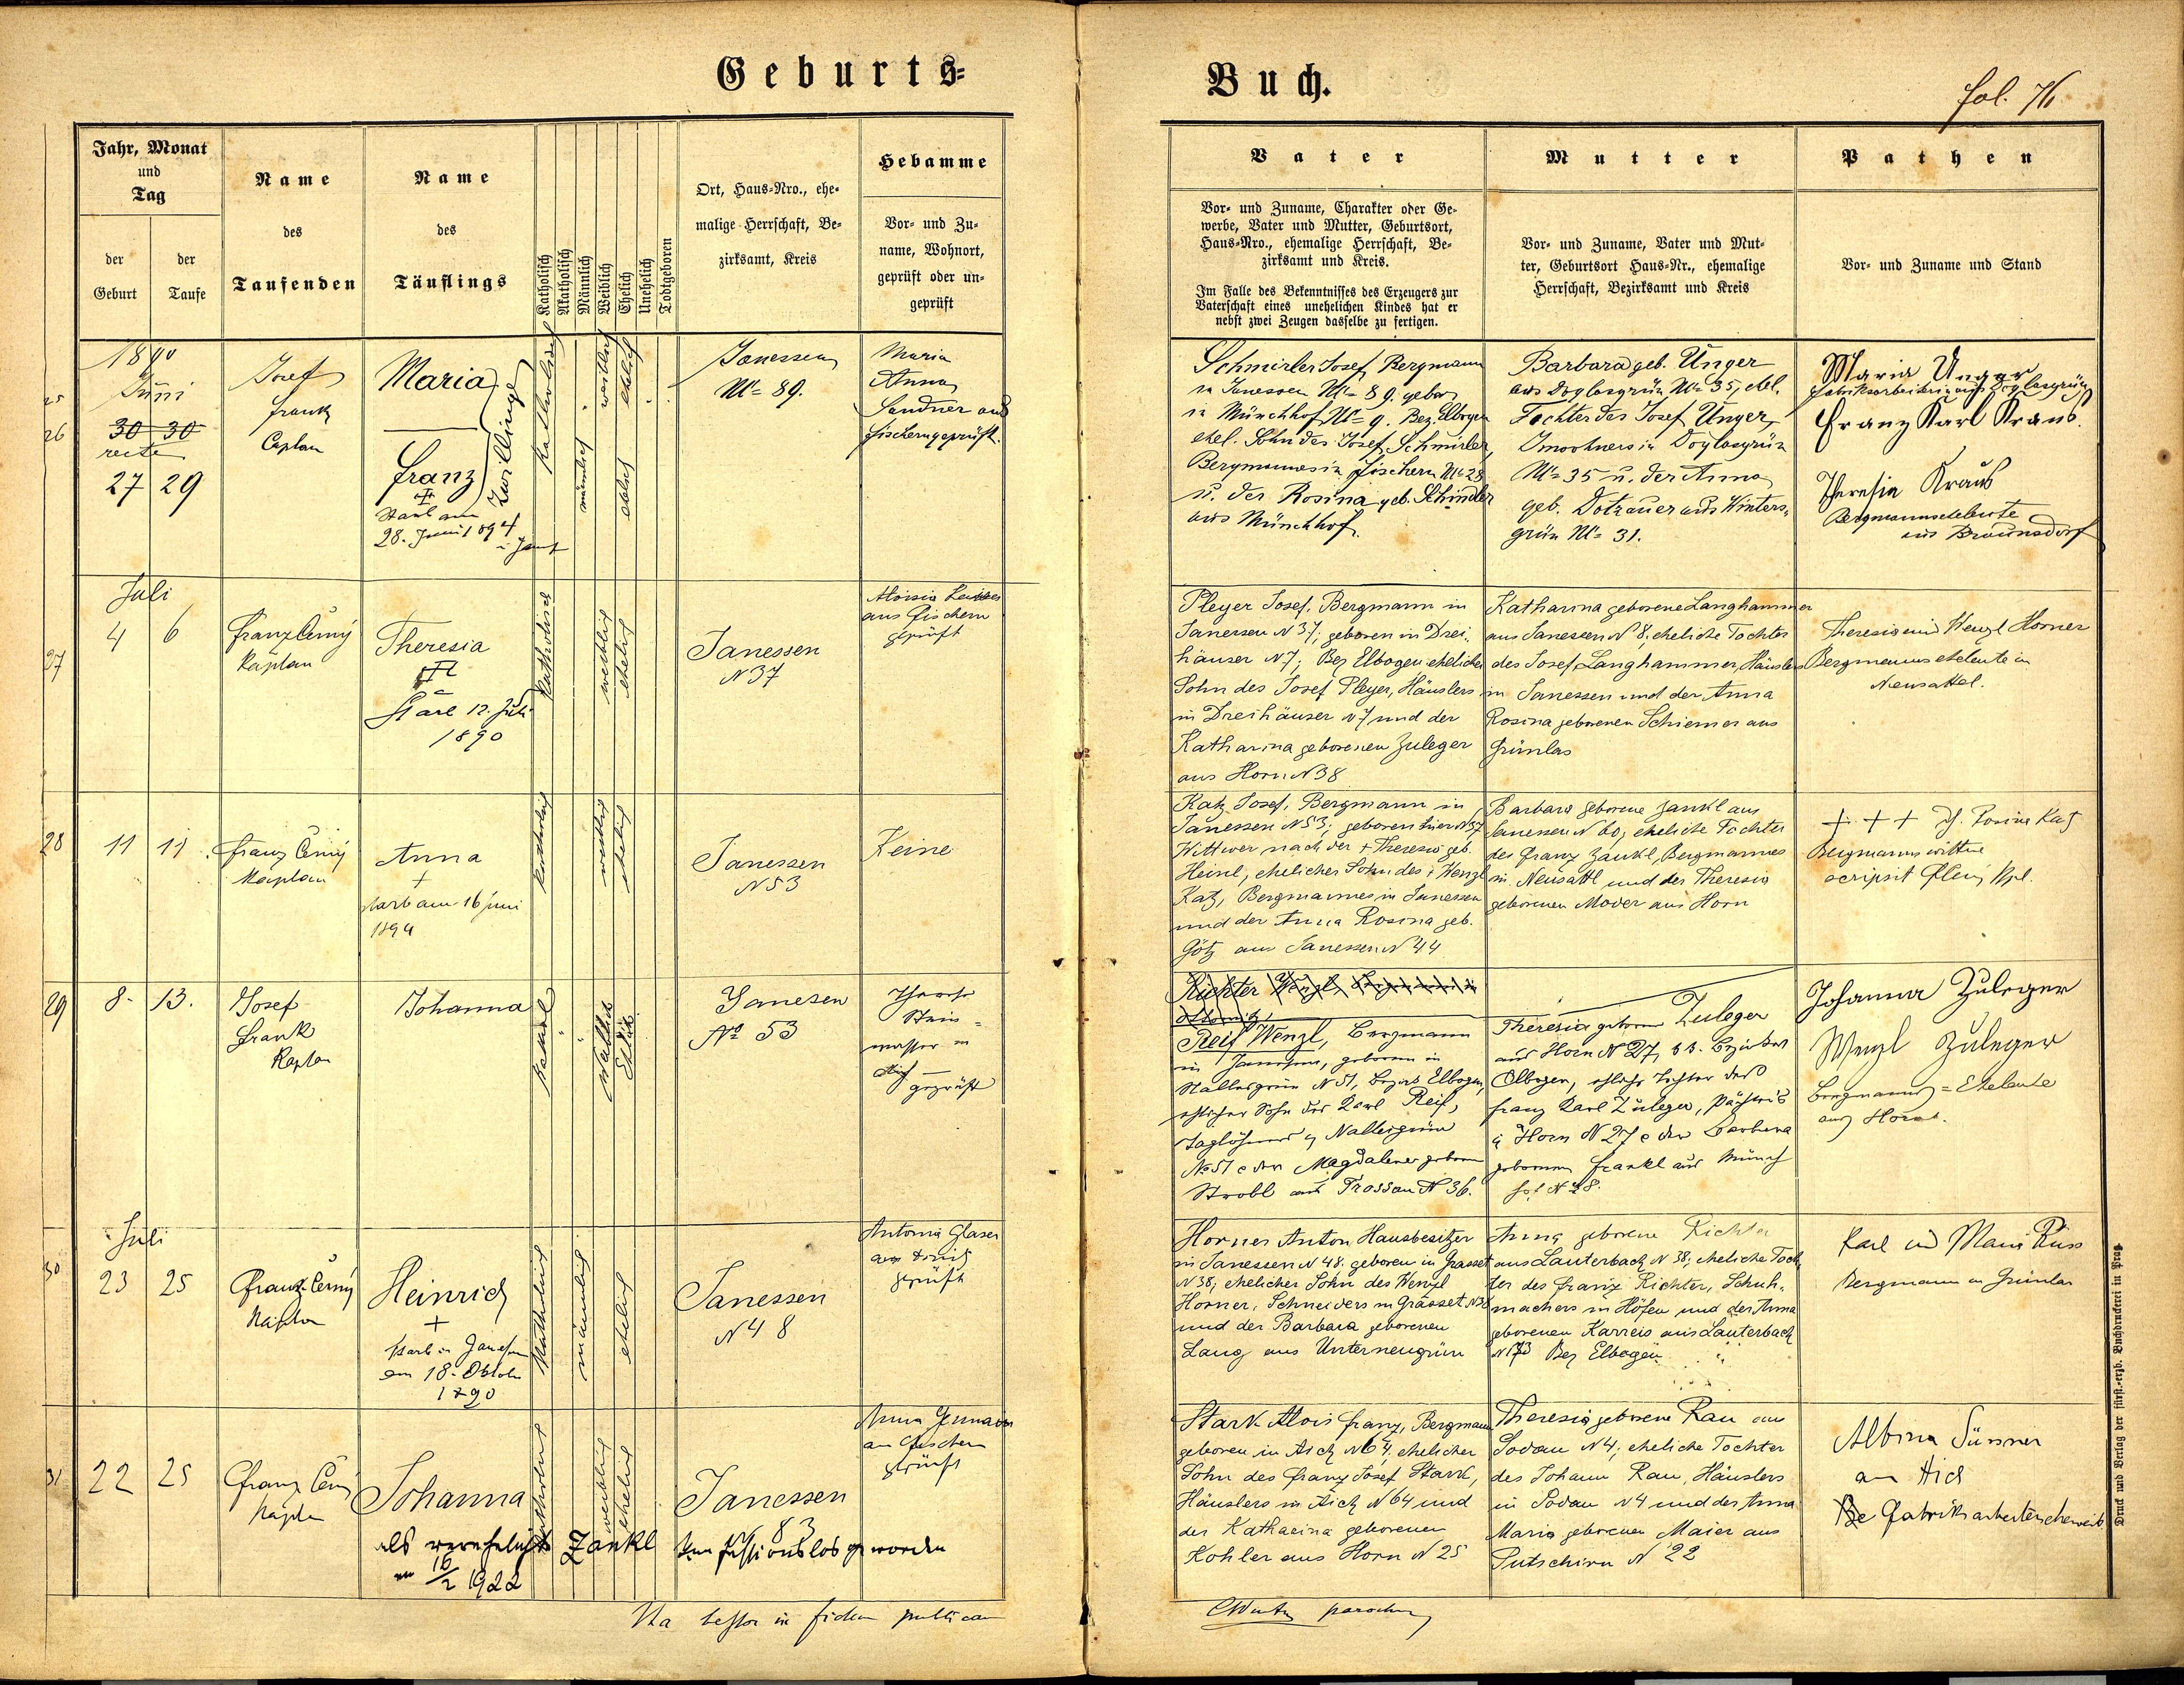 Geburts=
Buch.
fol. 76
Jahr, Monat
und
Tag
der
Geburt
der
Taufe
Name
des
Taufenden
Name
des
Täuflings
Katholisch
Akatholisch
Männlich
Weiblich
Ehelich
Unehelich
Todtgeboren
Ort, Haus=Nro., ehe=
malige Herrschaft, Be=
zirksamt, Kreis
Hebamme
Vor= und Zu=
name, Wohnort,
geprüft oder un=
geprüft
Vater
Vor= und Zuname, Charakter oder Ge=
werbe, Vater und Mutter, Geburtsort,
Haus=Nro., ehemalige Herrschaft, Be=
zirksamt und Kreis.
Im Falle des Bekenntnisses des Erzeugers zur
Vaterschaft eines unehelichen Kindes hat er
nebst zwei Zeugen dasselbe zu fertigen.
Mutter
Vor= und Zuname, Vater und Mut=
ter, Geburtsort Haus=Nr., ehemalige
Herrschaft, Bezirksamt und Kreis
Pathen
Vor= und Zuname und Stand
25
26
1890
Juni
30 30
recte
27 29
Josef
Frank
Caplan
Maria
Franz
Zwillinge
Starb am
28. Juni 1894
katholisch
männlich
weiblich
ehelich
ehelich
Janessen
No 89.
Maria
Anna
Sandner aus
Fischern geprüft.
Schmirler Josef, Bergmann
in Janessen No 89. gebor.
in Münchhof No 9. Bez. Elbogen
ehel. Sohn des Josef Schmirler,
Bergmannes in Fischern No 28
u. der Rosina geb. Schindler
aus Münchhof.
Barbara geb. Unger
aus Doglasgrün No 35, ehel.
Tochter des Josef Unger,
Inwohners in Doglasgrün
No 35 u. der Anna
geb. Dotzauer aus Winters=
grün No 31.
Maria Unger
Fabriksarbeiterin aus Doglasgrün
Franz Karl Kraus.
Theresia Kraus
Bergmannseheleute
aus Braunsdorf
27
Juli
4 6
Franz Černý
Kaplan
Theresia
Starb 12. Juli
1890
katholisch
weiblich
ehelich
Janessen
N 37
Aloisia
aus Fischern
geprüft
Pleyer Josef, Bergmann in
Janessen N 37; geboren in Drei=
häuser N 7; Bez Elbogen ehelicher
Sohn des Josef Pleyer, Häuslers
in Dreihäuser N 7 und der
Katharina geborenen Zuleger
aus Horn N 38
Katharina geborene Langhammer
aus Janessen N 8, eheliche Tochter
des Josef Langhammer, Häuslers
in Janessen und der Anna
Rosina geborenen Schiemer aus
Grünlas
Theresia und Wenzl Horner
Bergmannseheleute in
Neusattel.
28
11 11
Franz Černý
Kaplan
Anna
+
starb am 16 Juni
1894
katholisch
weiblich
ehelich
Janessen
N 53
Keine
Katz Josef, Bergmann in
Janessen N 53; geboren hier N 37
Wittwer nach der + Theresia geb.
Heinl, ehelicher Sohn des + Wenzl
Katz, Bergmannes in Janessen
und der Anna Rosina geb.
Götz aus Janessen N 44
Barbara geborene Zankl aus
Janessen N 60, eheliche Tochter
des Franz Zankl, Bergmannes
in Neusattl und der Theresia
geborenen Moder aus Horn
+ + + Rosina Katz
Bergmannswittwe
scripsit
29
8. 13.
Josef
Frank
Kaplan
Johanna
kathol
Weiblich
Ehlich
Janesen
No 53
Therese
Stein=
wasser in
Aich
geprüft
Richter Wenzl, Bergmann in
Reif Wenzl, Bergmann
in Janessen, geboren in
Nallesgrün N 51, Bezirk Elbogen,
ehlicher Sohn des Karl Reif,
Taglöhners in Nallesgrün
No 51 e der Magdalena geboren
Strobl aus Trossau N 36.
Theresia geboren Zuleger
aus Horn N 27, Bezirkes
Elbogen, ehliche Tochter des
Franz Karl Zuleger, Pächters
in Horn N 27 e der Barbara
geborenen Frankl aus Münch
hof N 28.
Johanna Zuleger
Wenzl Zuleger
Bergmanns=Eheleute
aus Horn.
30
Juli
23 25
Franz Černý
Kaplan
Heinrich
+
starb in Janessen
am 18. Oktober
1890
katholisch
männlich
ehelich
Janessen
N 48
Antonia Glaser
aus
geprüft
Horner Anton Hausbesitzer
in Janessen N 48. geboren in Grasset
N 38; ehelicher Sohn des Wenzl
Horner, Schneiders in Grasset N 38
und der Barbara geborenen
Lang aus Unterneugrün
Anna geborene Richter
aus Lauterbach N 38; eheliche Toch
ter des Franz Richter, Schuh=
machers in Höfen und der Anna
geborenen Karreis aus Lauterbach
N 173 Bez Elbogen
Karl und Maria Russ
Bergmann in Grünlas
31
22 25
Franz Černý
Kaplan
Johanna
katholisch
weiblich
ehelich
Janessen
83
Anna
aus Fischern
geprüft
als verehelichte Zankl konfessionslos geworden
am 16/2 1922
Stark Alois Franz, Bergmann
geboren in Aich N 64, ehelicher
Sohn des Franz Josef Stark,
Häuslers in Aich N 64 und
der Katharina geborenen
Kohler aus Horn N 25
Theresia geborene Rau aus
Sodau N 4; eheliche Tochter
des Johann Rau, Häuslers
in Sodau N 4 und der Anna
Maria geborenen Maier aus
Putschirn N 22
Albina Sünner
aus Aich
Fabriksarbeiterseheweib
Ita testor in fidem publicam
parochus
Druck und Verlag der fürst.=erzb. Buchdruckerei in Prag.